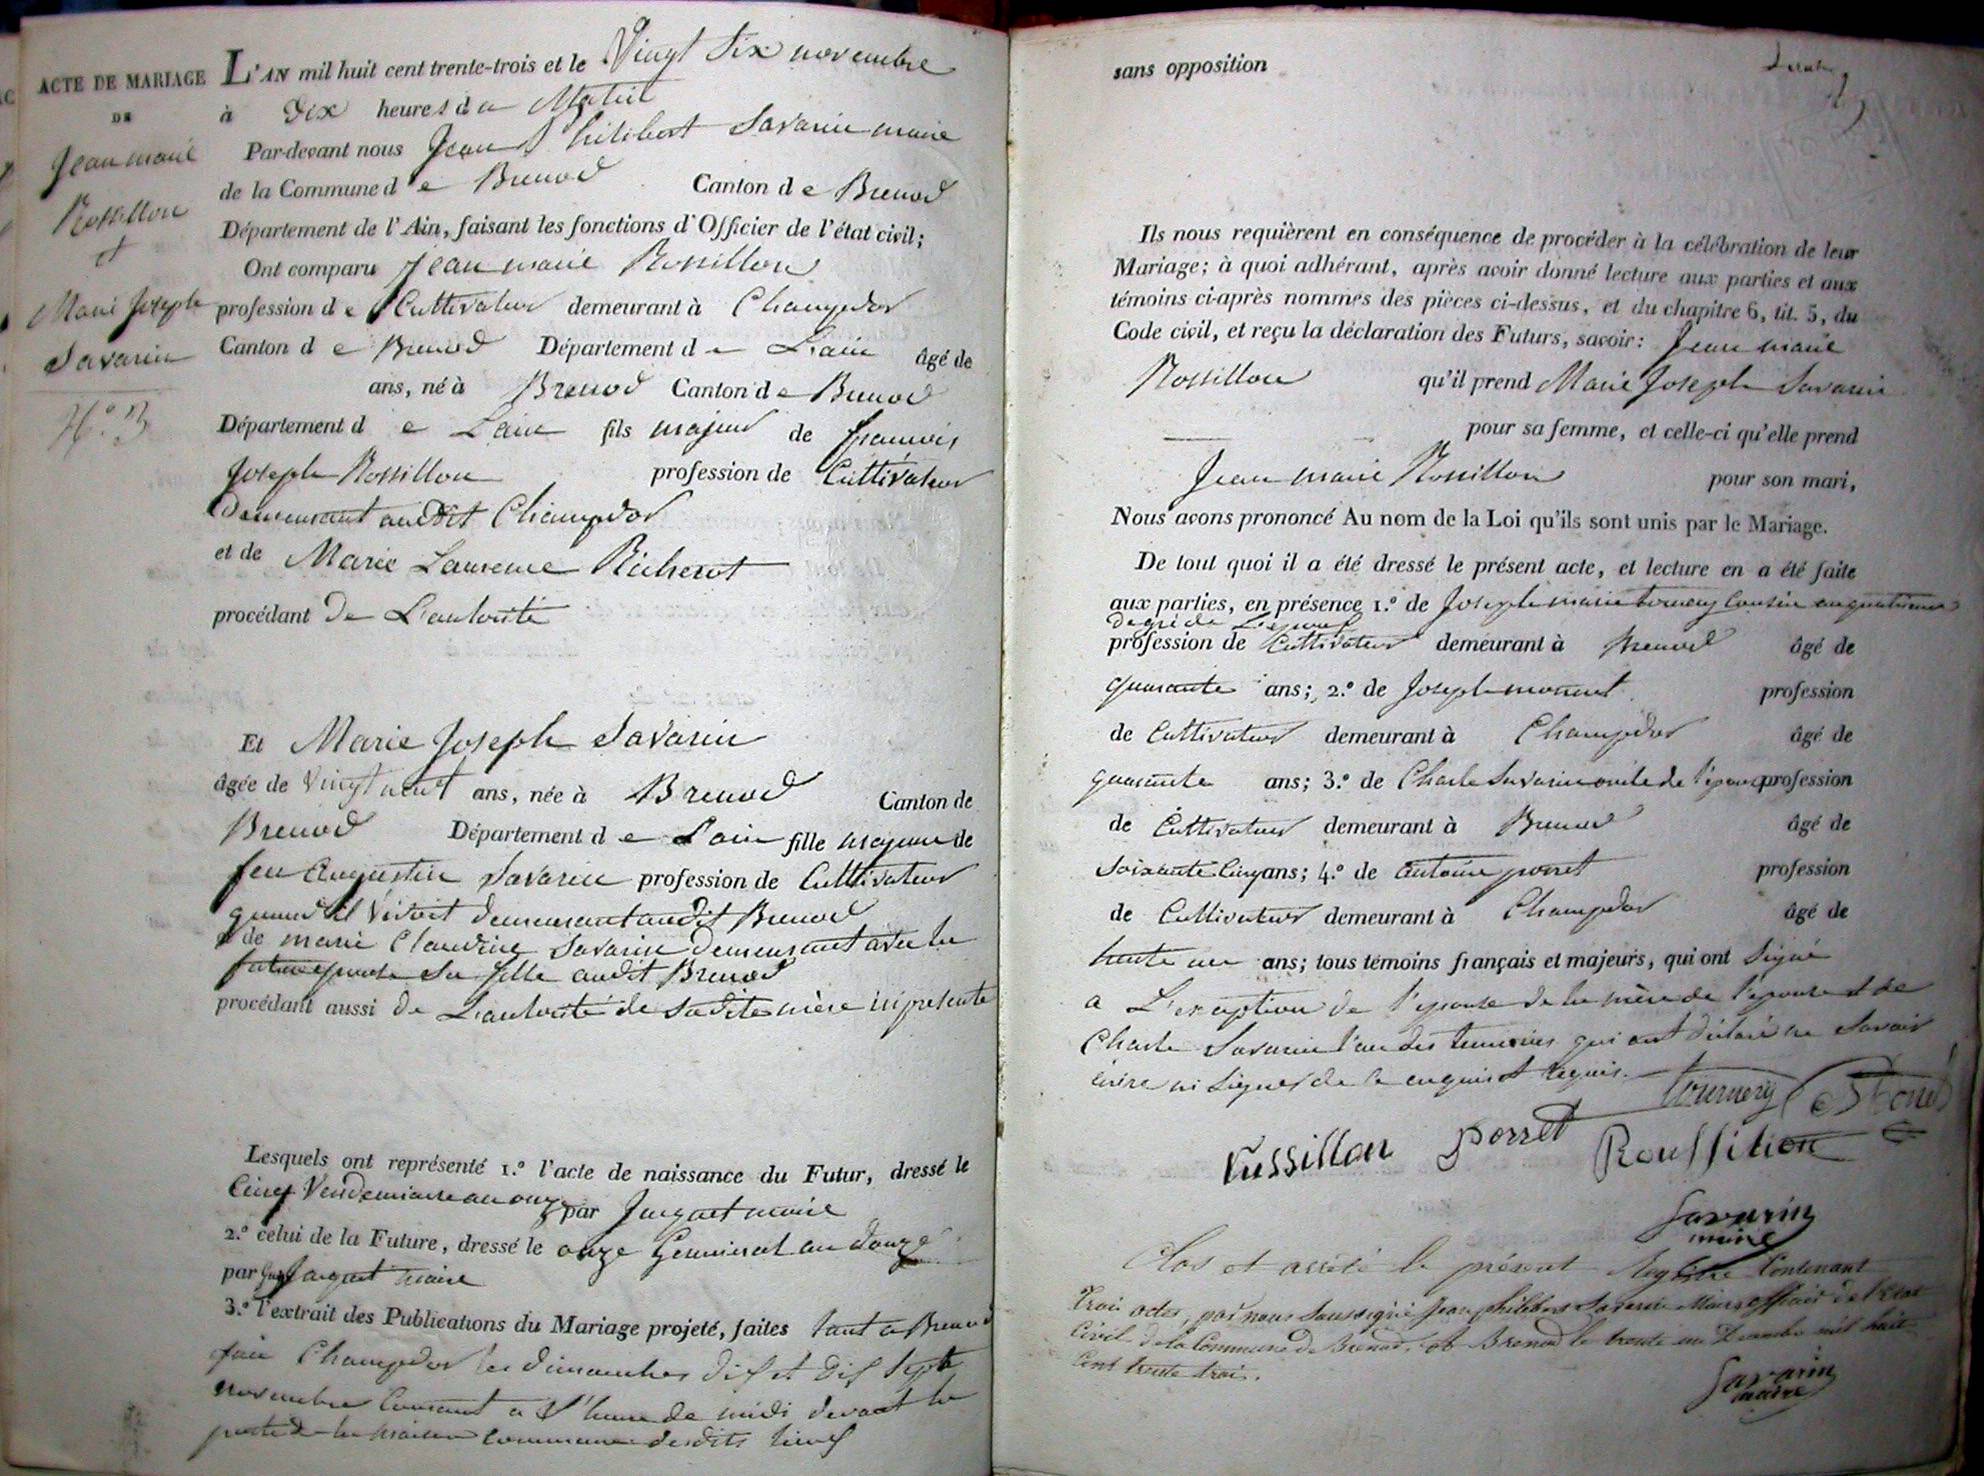 ACTE DE MARIAGE
DE
Jean marie
Rossillon
et
Marie Joseph
Savarin
N.º 3
L'AN mil huit cent trente-trois et le Vingt Six novembre
à Dix heures du Matin
Par-devant nous Jean Philibert Savarin maire
de la Commune de Brenod Canton de Brenod
Département de l'Ain, faisant les fonctions d'Officier de l'état civil;
Ont comparu Jean marie Rossillon
profession de Cultivateur demeurant à Champdor
Canton de Brenod Département de L'ain âgé de
ans, né à Brenod Canton de Brenod
Département de L'ain fils majeur de francois
Joseph Rossillon profession de Cultivateur
Demeurant audit Champdor
et de Marie Laurence Richerot
procédant De L'autorité
Et Marie Joseph Savarin
âgée de Vingt neuf ans, née à Brenod Canton de
Brenod Département de L'ain fille majeure de
feu Augustin Savarin profession de Cultivateur
quand il Vivoit demeurant audit Brenod
& de marie Claudine Savarin demeurant avec la
future epouse Sa fille audit Brenod
procédant aussi de L'autorité de Sadite mère ici presente
Lesquels ont représenté 1.º l'acte de naissance du Futur, dressé le
Cinq Vendemiaire an onze par Jacquet maire
2.º celui de la Future, dressé le onze Germinal an douze
par Jacquet maire
3.º l'extrait des Publications du Mariage projeté, faites tant a Brenod
Champdor les dimanches dix et dix Sept
novembre Courant a L'heure de midi devant la
porte de la maison commune desdits lieux
sans opposition
Ils nous requièrent en conséquence de procéder à la célébration de leur
Mariage; à quoi adhérant, après avoir donné lecture aux parties et aux
témoins ci-après nommés des pièces ci-dessus, et du chapitre 6, tit. 5, du
Code civil, et reçu la déclaration des Futurs, savoir: Jean marie
Rossillon qu'il prend Marie Joseph Savarin
pour sa femme, et celle-ci qu'elle prend
Jean marie Rossillon pour son mari,
Nous avons prononcé Au nom de la Loi qu'ils sont unis par le Mariage.
De tout quoi il a été dressé le présent acte, et lecture en a été faite
aux parties, en présence 1.º de Joseph marie tournery Cousin au quatrieme
degré de L'epoux
profession de Cultivateur demeurant à Brenod âgé de
quarante ans; 2.º de Joseph monnet profession
de Cultivateur demeurant à Champdor âgé de
quarante ans; 3.º de Charle Savarin oncle de l'epouse profession
de Cultivateur demeurant à Brenod âgé de
Soixante Cinq ans; 4.º de antoine porret profession
de Cultivateur demeurant à Champdor âgé de
trente un ans; tous témoins français et majeurs, qui ont Signé
a L'exception de l'epouse de la mère de l'epouse et de
Charle Savarin l'un des temoins qui ont déclaré ne Savoir
écrire ni Signer de ce enquis et requis.
tournery
Porret
Roussillion
Savarin
maire
Clos et arrêté le présent Registre Contenant
trois actes, par nous Soussigné Jean philibert Savarin Maire officier de l'état
Civil de la Commune de Brenod, à Brenod le trente un Decembre mil huit
Cent trente trois.
Savarin
maire